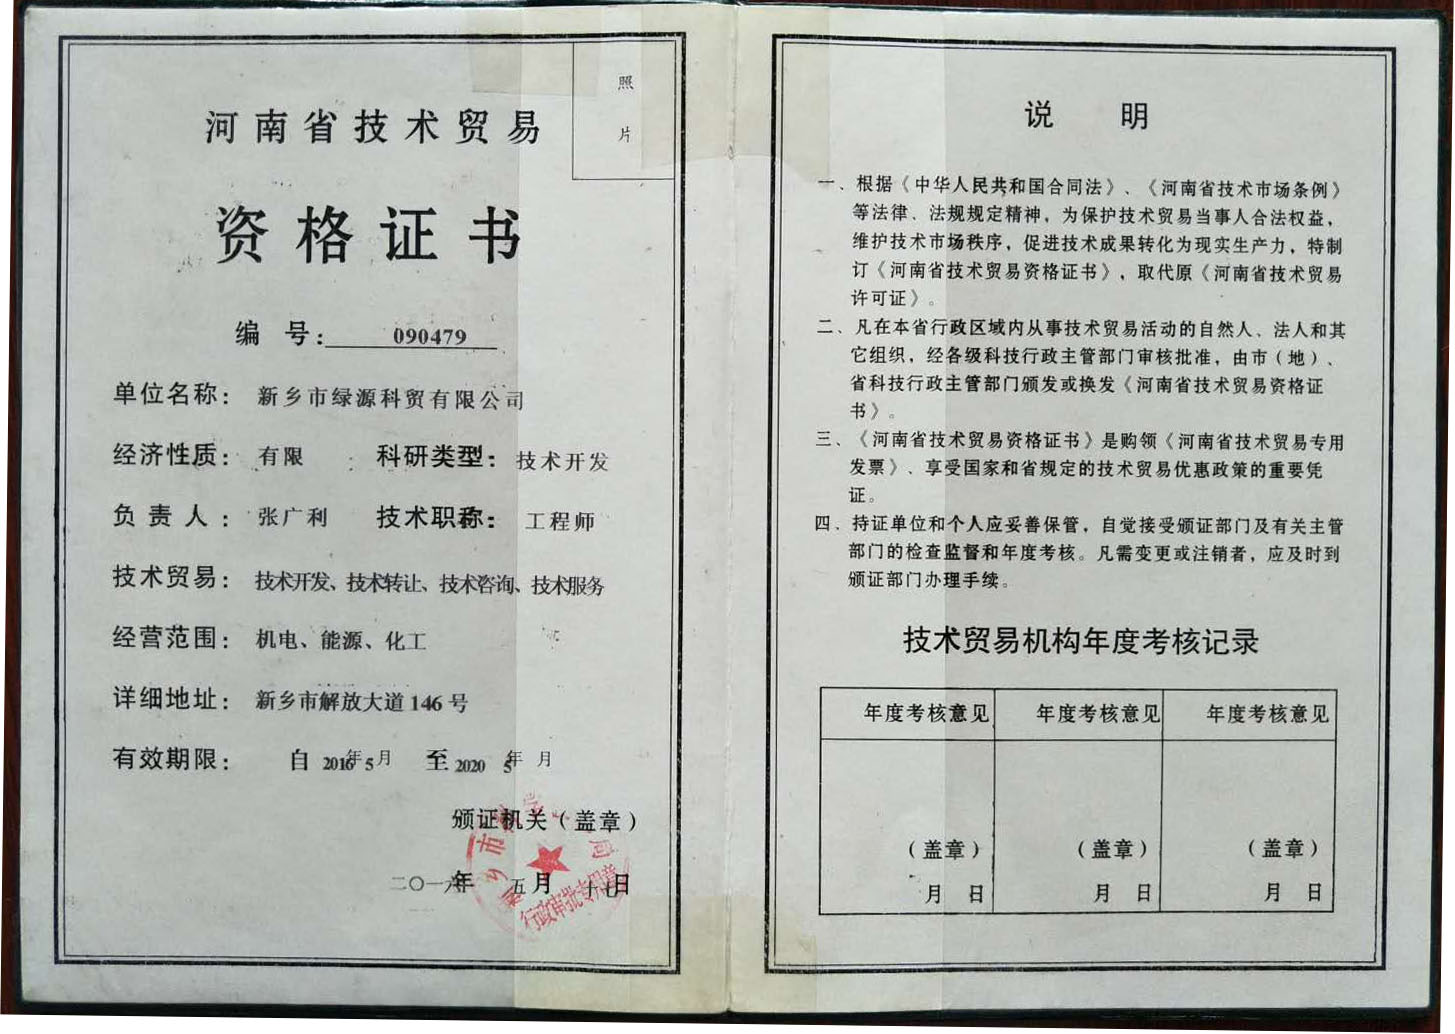 照
片
河南省技术贸易
资格证书
编 号：090479
单位名称：新乡市绿源科贸有限公司
经济性质：有限 科研类型：技术开发
负责人：张广利 技术职称：工程师
技术贸易：技术开发、技术转让、技术咨询、技术服务
经营范围：机电、能源、化工
详细地址：新乡市解放大道146号
有效期限：自2016年5月 至2020年5月
颁证机关（盖章）
二〇一六年五月十七日
行政审批专用章
说 明
一、根据《中华人民共和国合同法》、《河南省技术市场条例》
等法律、法规规定精神，为保护技术贸易当事人合法权益，
维护技术市场秩序，促进技术成果转化为现实生产力，特制
订《河南省技术贸易资格证书》，取代原《河南省技术贸易
许可证》。
二、凡在本省行政区域内从事技术贸易活动的自然人、法人和其
它组织，经各级科技行政主管部门审核批准，由市（地）、
省科技行政主管部门颁发或换发《河南省技术贸易资格证
书》。
三、《河南省技术贸易资格证书》是购领《河南省技术贸易专用
发票》、享受国家和省规定的技术贸易优惠政策的重要凭
证。
四、持证单位和个人应妥善保管，自觉接受颁证部门及有关主管
部门的检查监督和年度考核。凡需变更或注销者，应及时到
颁证部门办理手续。
技术贸易机构年度考核记录
年度考核意见 年度考核意见 年度考核意见
（盖章） （盖章） （盖章）
月 日 月 日 月 日